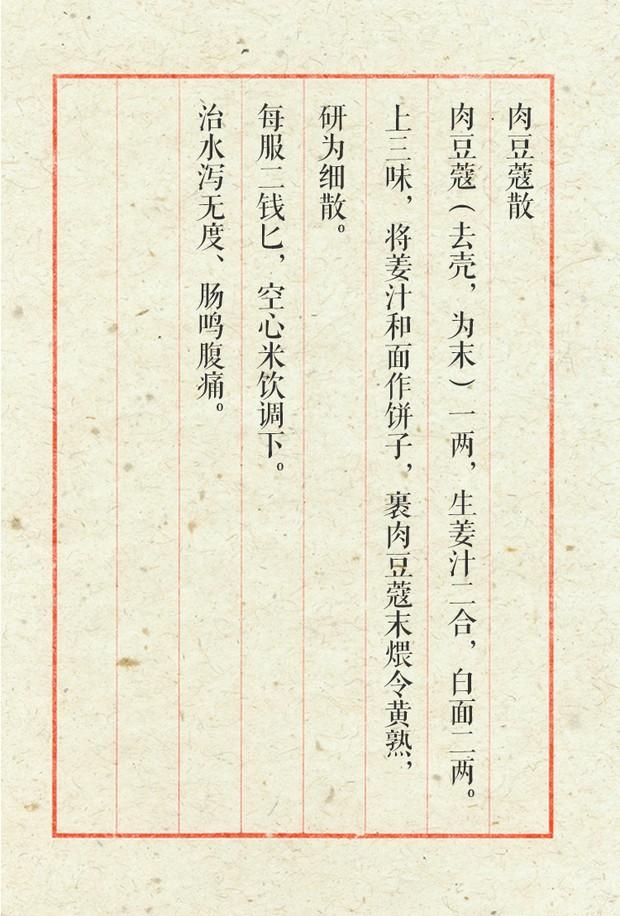 肉豆蔻散
肉豆蔻（去壳，为末）一两，生姜汁二合，白面二两。
上三味，将姜汁和面作饼子，裹肉豆蔻末煨令黄熟，
研为细散。
每服二钱匕，空心米饮调下。
治水泻无度、肠鸣腹痛。